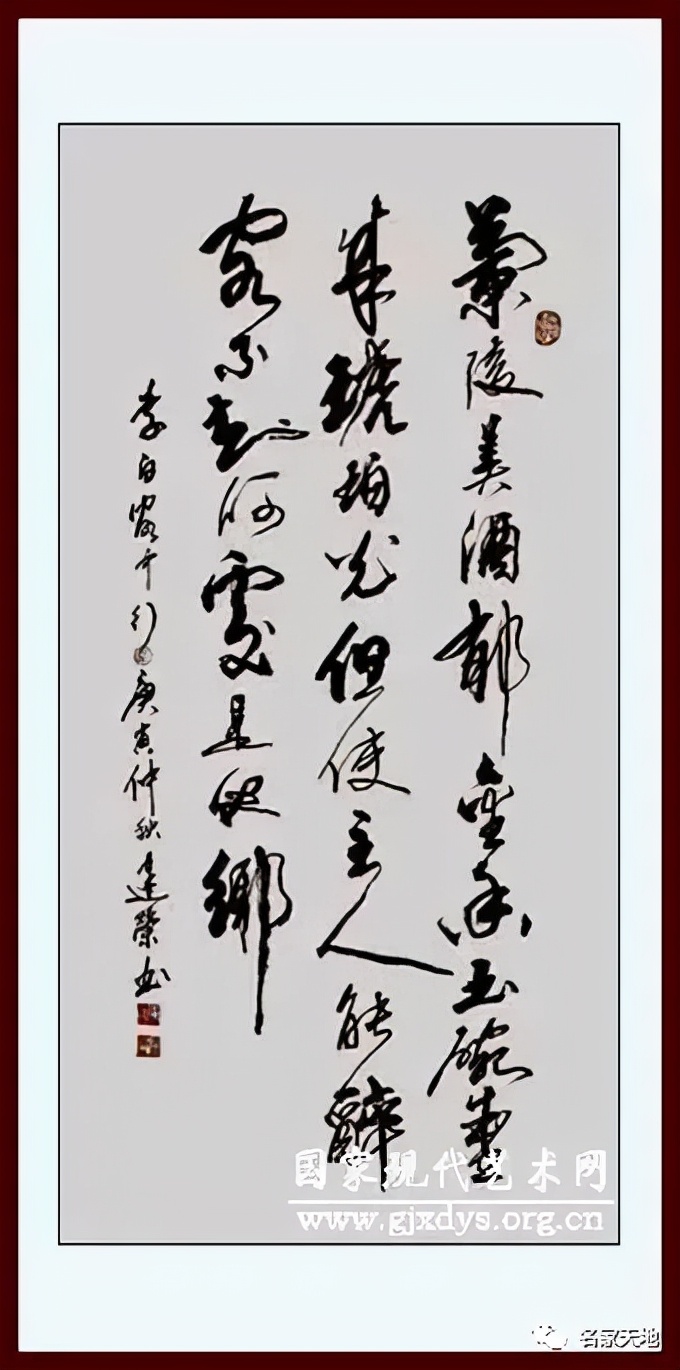 蘭陵美酒郁金香玉碗盛
来琥珀光但使主人能醉
客不知何處是他鄉
李白客中行
庚寅仲秋榮书
国家现代艺术网
www.gjxdys.org.cn
名家天地